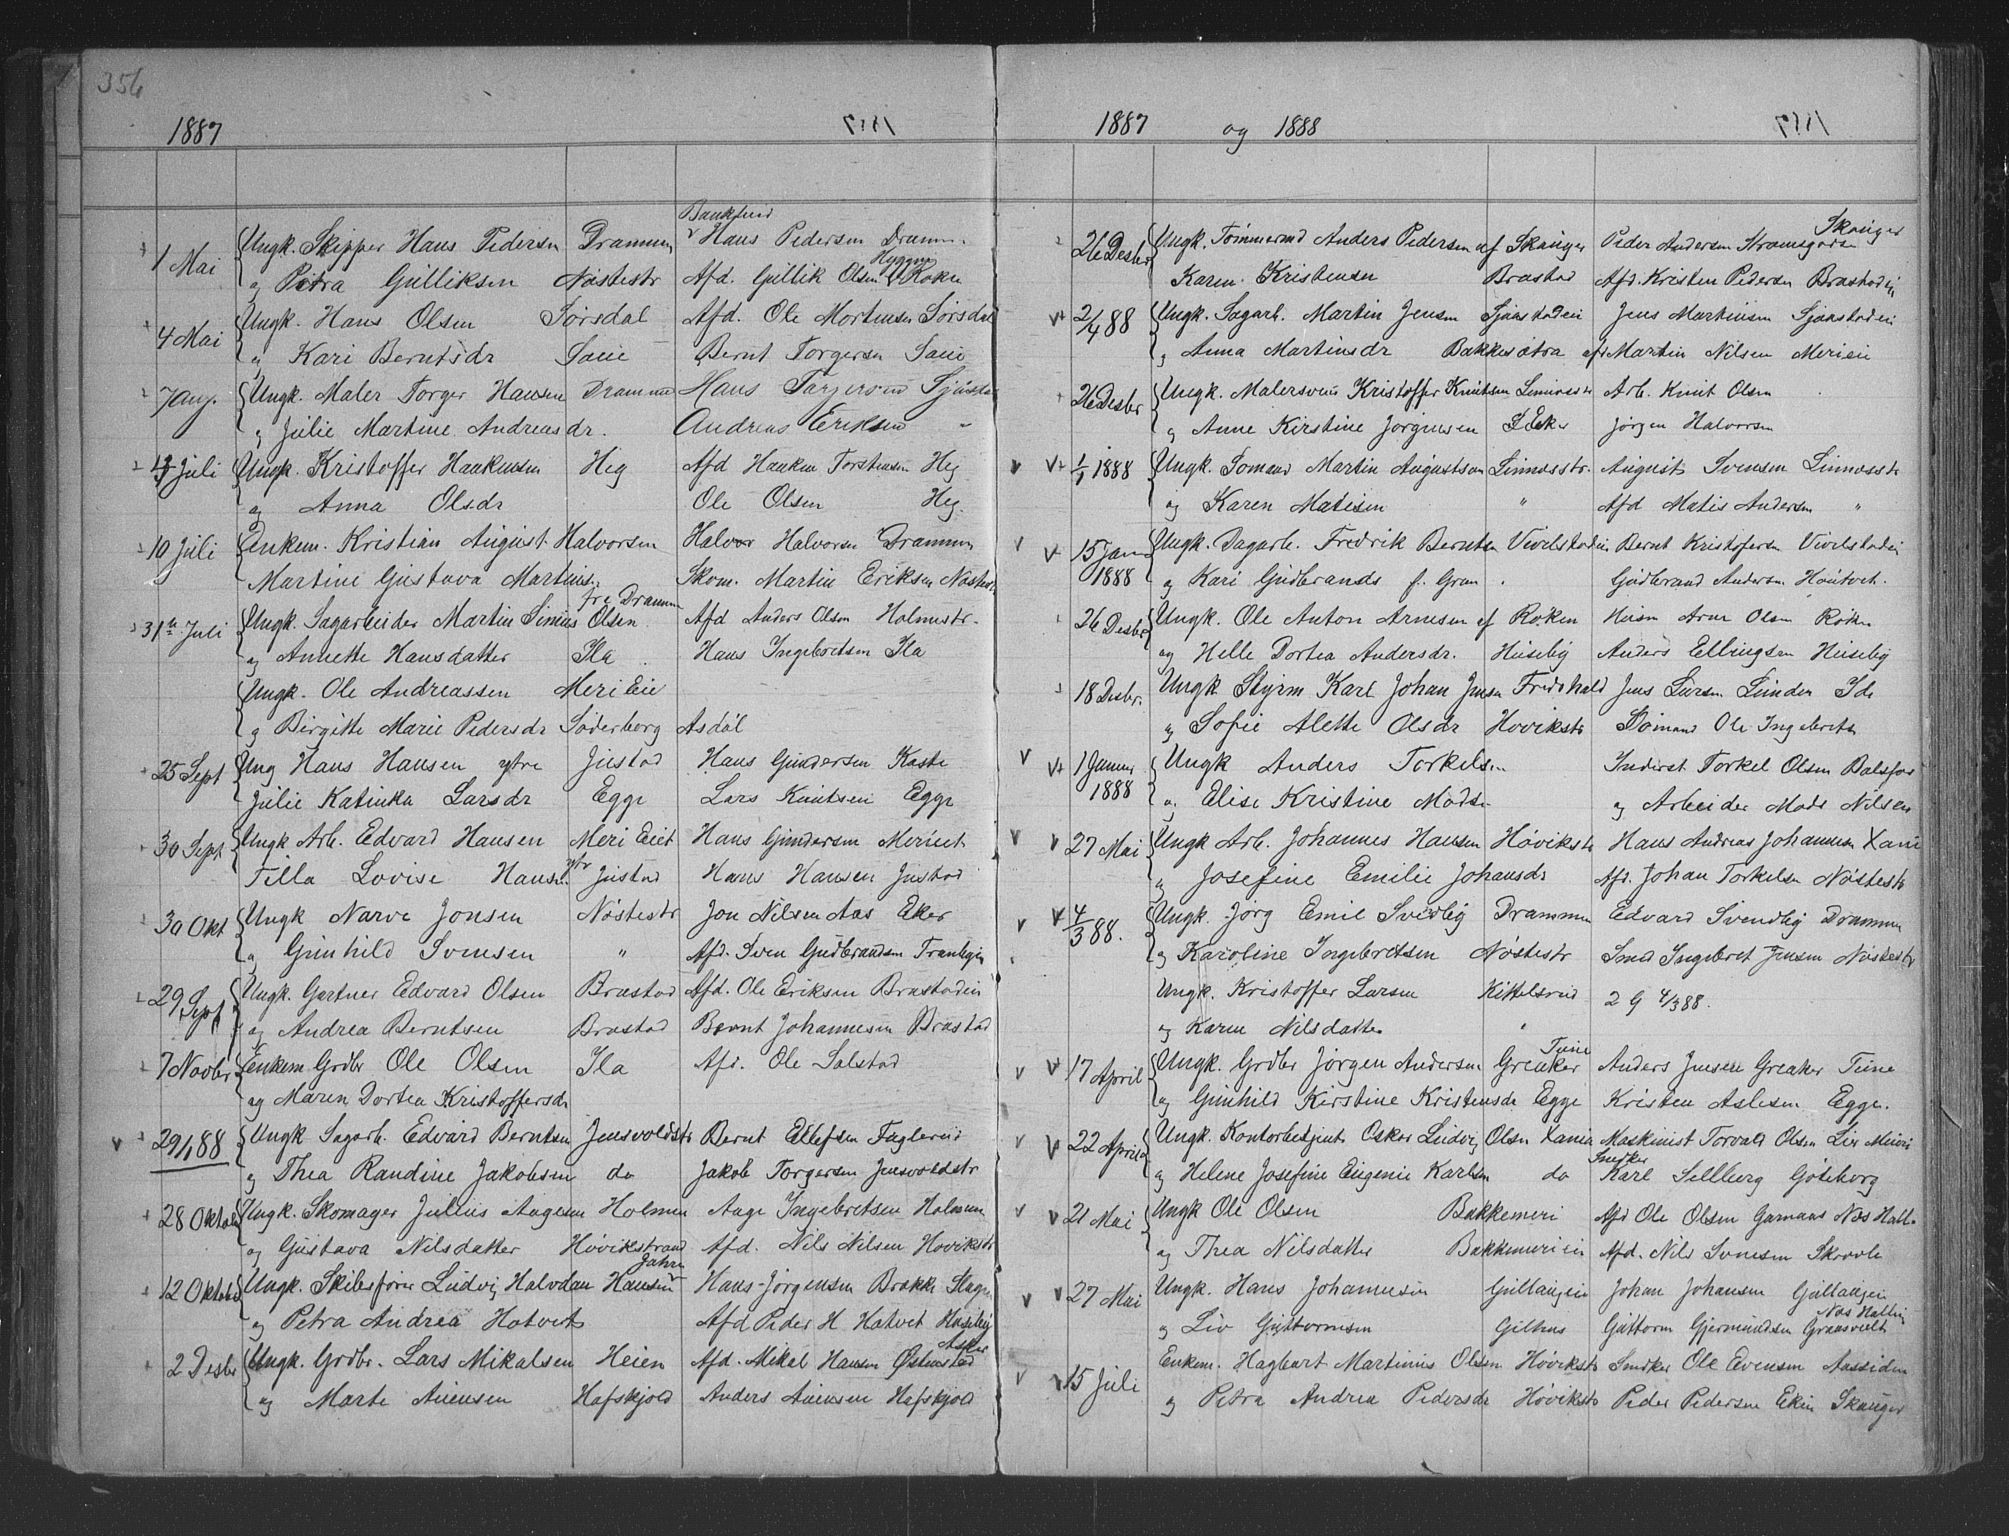 356
1887
1 Mai Ungk. Skipper Hans Pedersen Drammen Hans Pedersen Dramm.
og Petra Gulliksen Nøstestr Afd. Gullik Olsen Hyggen Røken
4 Mai Ungk. Hans Olsen Sørsdal Afd. Ole Mortensen Sørsdal
og Kari Berntsdr Saue Bernt Torgersen Saue
7 Aug. Ungk. Maler Torger Hansen Drammen Hans Torgersen
og Julie Martine Andreasdr. Andreas Eriksen "
Juli Ungk. Kristoffer Haakensen Heg Afd Haaken Torstensen Heg
og Anna Olsdr Ole Olsen Heg.
10 Juli Enkem. Kristian August Halvorsen Halvor Halvorsen Drammen
Martine Gustava Martins. Skom. Martin Eriksen Nøstestr
fra Drammen
31te Juli Ungk. Sagarbeider Martin Simius Olsen Afd Anders Olsen Holmestr.
og Annette Hansdatter Ila Hans Ingebretsen Ila
Ungk. Ole Andreassen Meri Eie
og Birgitte Marie Pedersdr Søderborg Asdøl
25 Sept Ung Hans Hansen ytre Justad Hans Gundersen Kaste
Julie Katinka Larsdr Egge Lars Knutsen Egge
30 Sept Ungk Arb. Edvard Hansen Meri Eiet Hans Gundersen Merieet
Tilla Lovise Hansen ytr Justad Hans Hansen Justad
30 Okt Ungk Narve Jonsen Nøstestr Jon Nilsen Aas Eker
og Gunhild Svensen " Afd. Sven Gudbrandsen Tranbyein
29 Sept Ungk. Gartner Edvard Olsen Brastad Afd. Ole Eriksen Brastadein
og Andrea Berntsen Brastad Bernt Johannesen Brastad
7 Novbr Enkem Grdbr Ole Olsen Ila Afd. Ole Solstad
og Maren Dortea Kristoffersdr
29/1 88 Ungk Sagarb. Edvard Berntsen Jensvoldstr Bernt Ellefsen Fuglerud
og Thea Randine Jakobsen do Jakob Torgersen Jensvoldstr
28 Oktob Ungk. Skomager Julius Aagesen Holmen Aage Ingebretsen Holmen
og Gustava Nilsdatter Høvikstrand Afd. Nils Nilsen Hovikstr
12 Oktob Ungk. Skibsfører Ludvig Halvdan Hansen Jahren Hans Jørgensen Brække
og Petra Andrea Hotvet Afd Peder H Hotvet Huseby
2 Desbr Ungk. Grdbr. Lars Mikalsen Heien Afd. Mikal Hansen Østenstad Asker
og Marte Auensen Hafskjold Anders Auensen Hafskjold
1887 og 1888
26 Desbr Ungk. Tømmermd Anders Pedersen af Skauger Peder Andersen Skauger
Karen Kristensen Brastad Afd. Kristen Pedersen Brastadein
2/4 88 Ungk. Sagarb. Martin Jensen Sjaastadein Jens Martinsen Sjaastadein
og Anna Martinsdr Bakkesætra afd Martin Nilsen Merieie
26 Desbr Ungk. Malersven Kristoffer Knutsen Linnesstr Arb. Knut Olsen
og Anne Kirstine Jørgensen Jørgen Halvorsen
1/1 1888 Ungk. Sømand Martin Augustsen Linnesstr. August Svensen Linnesstr
og Karen Matisen " Afd Matis Andersen "
15 Jan 1888 Ungk. Dagarb. Fredrik Berntsen Vivelstadein Bernt Kristofersen Vivelstadein
og Kari Gudbrands f. Gran Gudbrand Andersen
26 Desbr Ungk. Ole Anton Arnesen af Røken Husm Arne Olsen Røken
og Helle Dortea Andersdr. Huseby Anders Ellingsen Huseby
18 Desbr. Ungk Styrm Karl Johan Jensen Fredshald Jens Larsen Linden Ide
og Sofie Alette Olsdr Hovikstr Sømand Ole Ingebretsen
1 Januar 1888 Ungk Anders Torkelsen Inderst Torkel Olsen
og Elise Kristine Mads. og Arbeider Mads Nilsen
27 Mai Ungk Arb. Johannes Hansen Høvikstr Hans Andreas Johannesen Xania
og Josefine Emilie Johansdr Afd. Johan Torkelsen Nøstestr
4/3 88. Ungk. Jørg Emil Svendby Drammen Edvard Svendby Drammen
og Karoline Ingebretsen Nøstestr Smed Ingebret Jensen Nøstestr
Ungk. Kristoffer Larsen Kittelsrud 2 G 4/3 88.
og Karen Nilsdatter "
17 April Ungk. Grdbr Jørgen Andersen Greaker Tune Anders Jensen Greaker Tune
og Gunhild Kirstine Kristensdr Egge Kristen Aslesen Egge.
22 April Ungk. Kontorbetjent Oskar Ludvig Olsen Xania Maskinist Torvald Olsen Lier
og Helene Josefine Eugenie Karlsen do Snedker Karl Sellberg Göteborg
21 Mai Ungk Ole Olsen Bakkemeri Afd Ole Olsen Garnaas Næs Hall.
og Thea Nilsdatter Bakkemerieie Afd. Nils Svensen Skovle
27 Mai Ungk. Hans Johannesen Gullaugein Johan Johansen Gullaugein
og Liv Guttormsen Gilhus Guttorm Gjermundsen Næs Hallin
15 Juli Enkem. Hagbart Martinius Olsen Høvikstr Snedker Ole Evensen Aassiden
og Petra Andrea Pedersdr Høvikstr Peder Pedersen Ekin Skauger